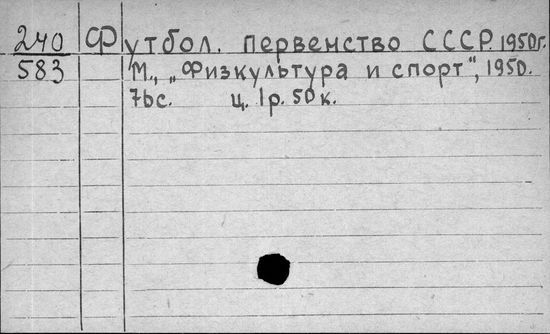 240 Футбол. Первенство СССР 1950г.
583 М., „Физкультура и спорт", 1950.
76с. ц. 1р. 50к.